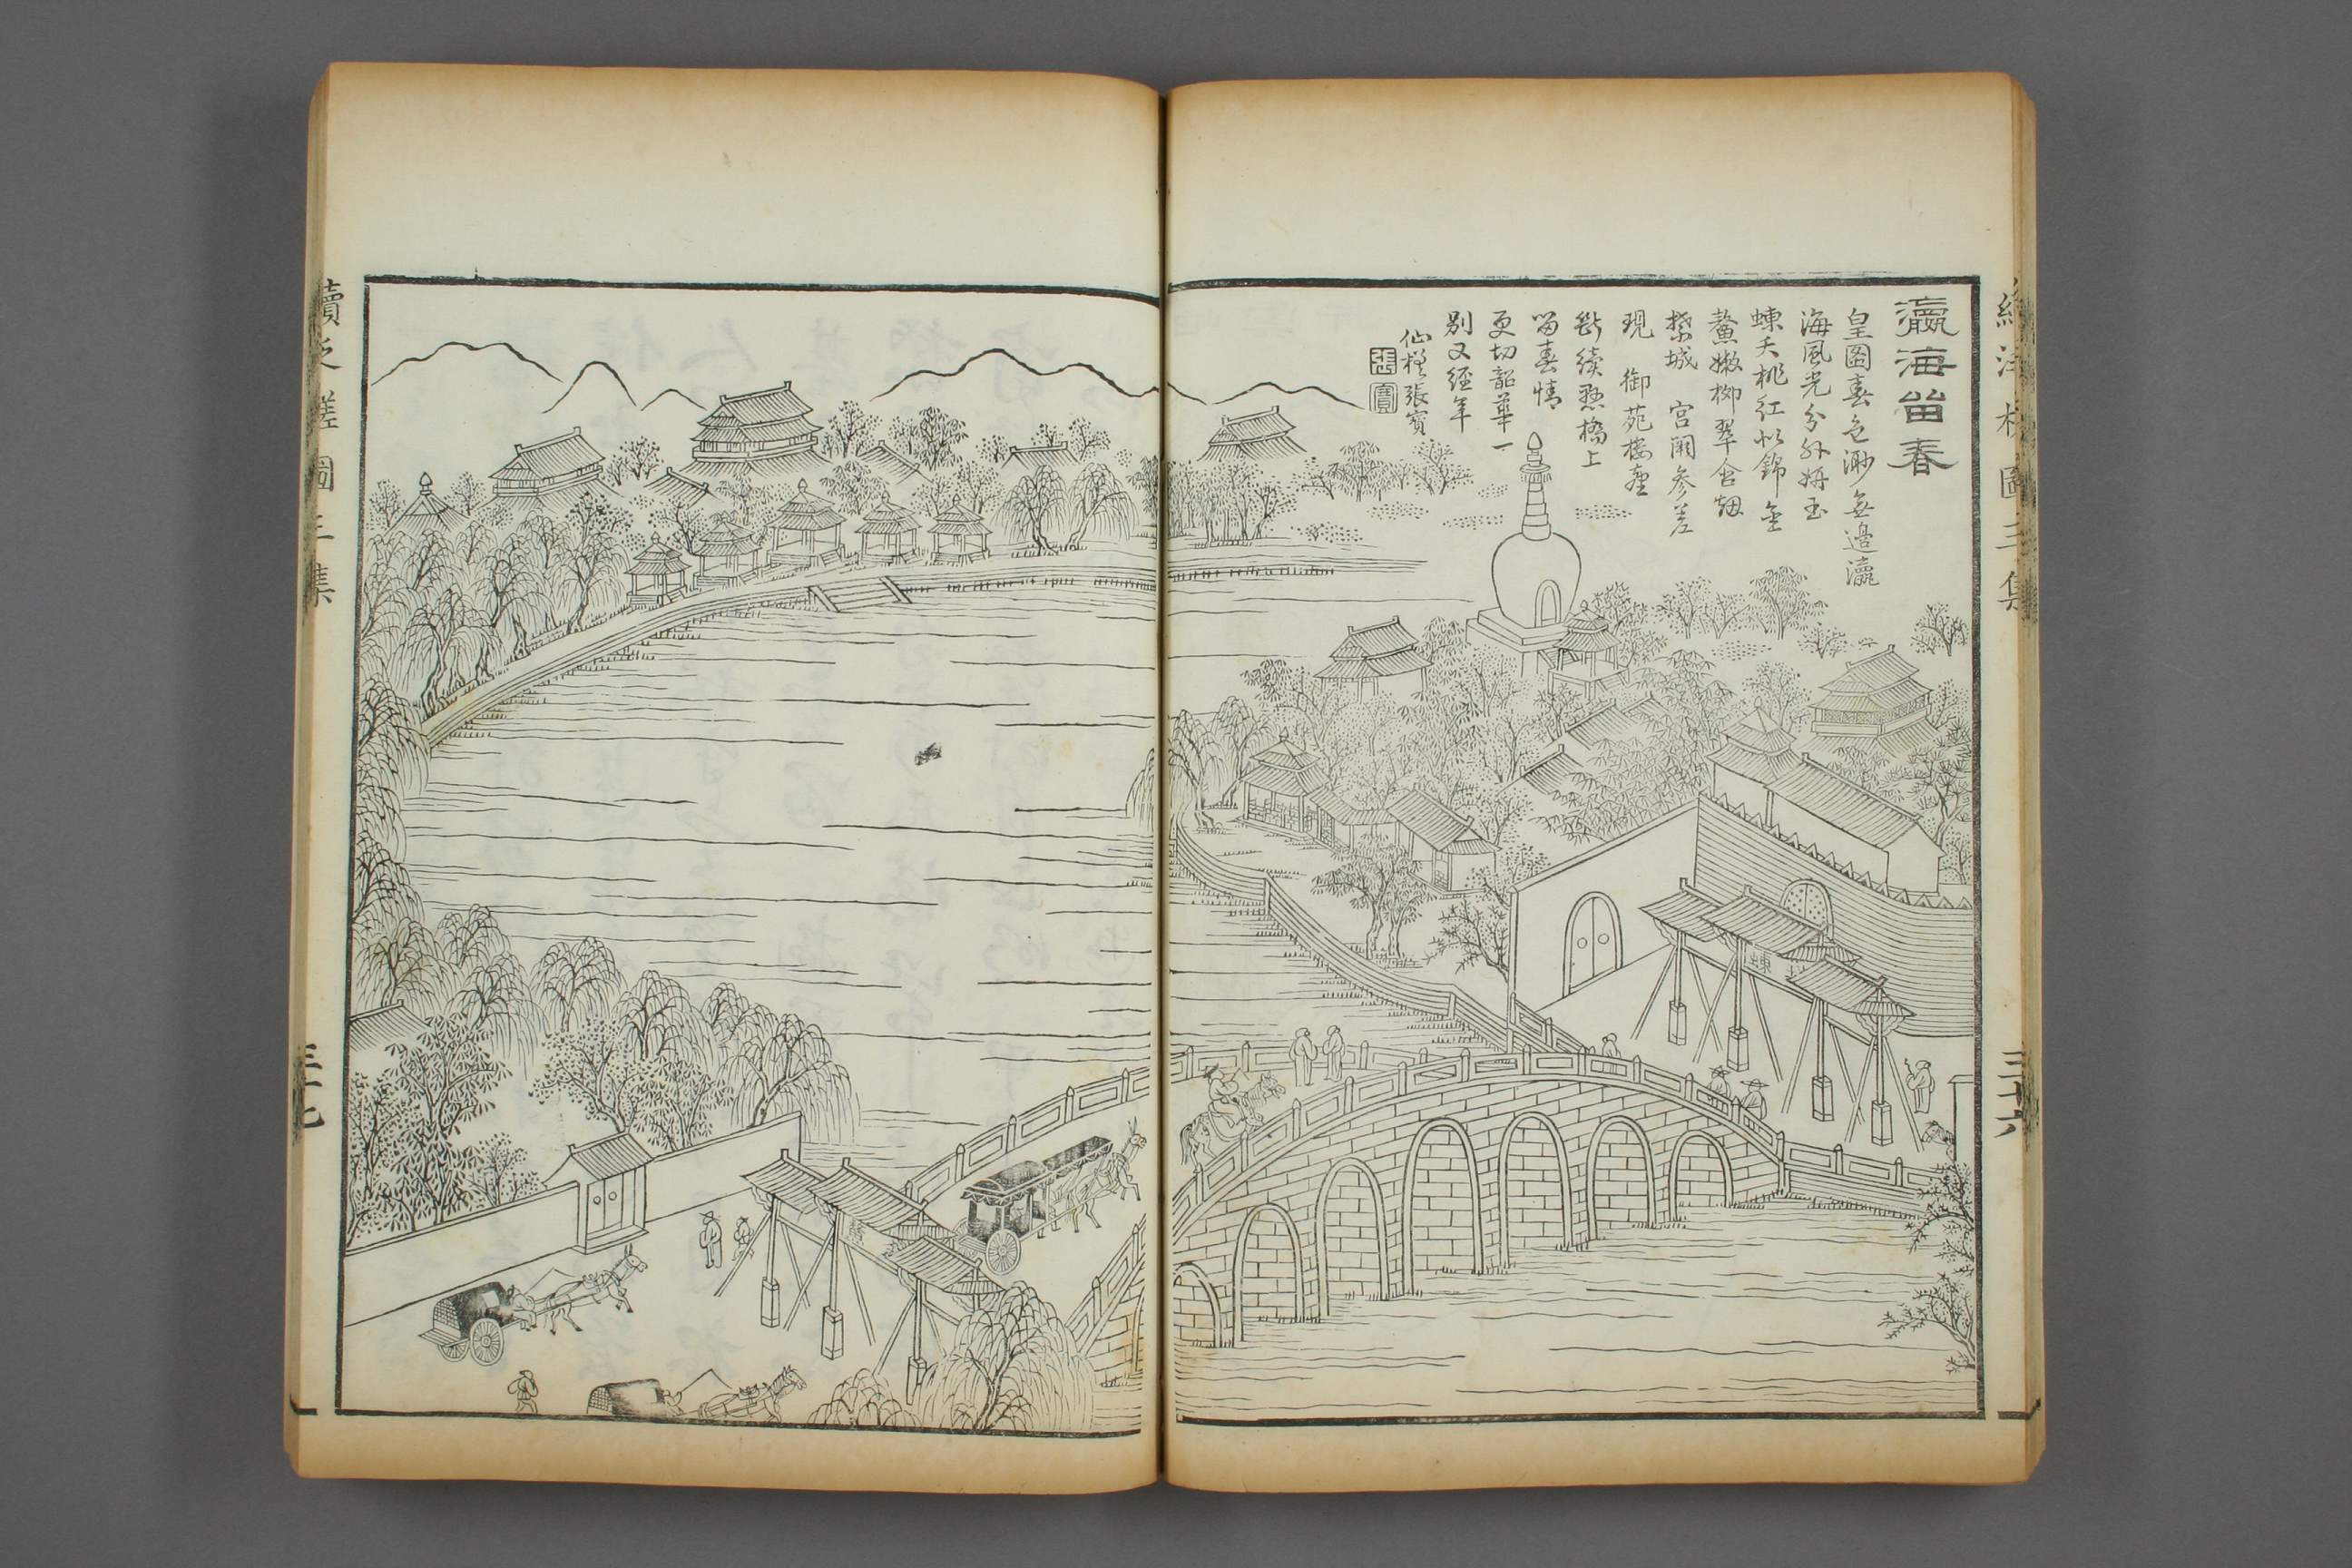 續泛槎圖三集
三十六
瀛海留春
皇圖春色渺無邊瀛
海風光分外妍玉
蝀夭桃紅似錦金
鰲嫩柳翠含烟
禁城 宮闕參差
現 御苑樓臺
斷續懸橋上
留春情
更切韶華一
別又經年
仙槎張寶
張寶
續泛槎圖三集
三十七